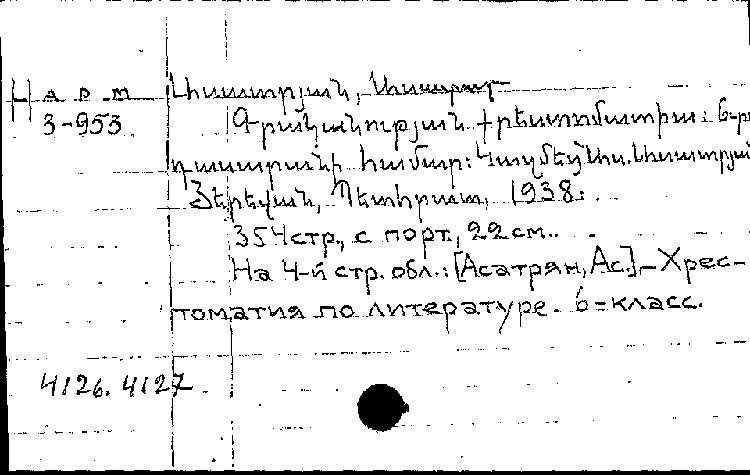 Н а р т Ասատրյան, Ասատուր
3-953 Գրականության քրեստոմատիա: 6-րդ
դասարանի համար: Կազմեց Աս. Ասատրյան
Յերեվան, Պետհրատ, 1938:
354 стр., с порт., 22 см.
На 4-й стр. обл.: [Асатрян, Ас.] - Хрес-
томатия по литературе. 6=класс.
4126. 4127